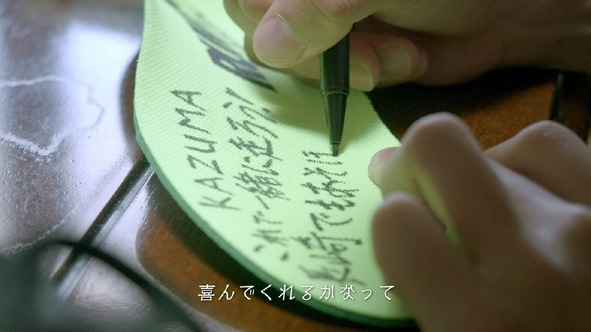 KAZUMA
これで一緒に走ろう!
長崎でも
喜んでくれるかなって